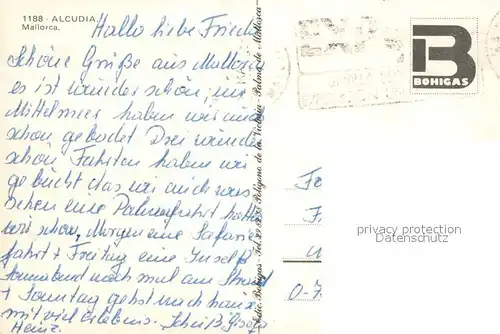 1188 - ALCUDIA.
Mallorca.
Hallo liebe Frieda
Schöne Grüße aus Mallorca
es ist wunder schön, im
Mittelmeer haben wir auch
schon gebadet Drei wunder
schön Fahrten haben wir
gebucht das wir auch was
sehen eine Palmafahrt hatte
wir schon, Morgen eine Safarie
fahrt + Freitag eine Inself
Sonnabend noch mal am Strand
+ Sonntag gehts nach hause
mit viel Erlebens.
Heinz
Bohigas - Polígono de la Victoria - Palma de Mallorca
B
BOHIGAS
privacy protection
Datenschutz